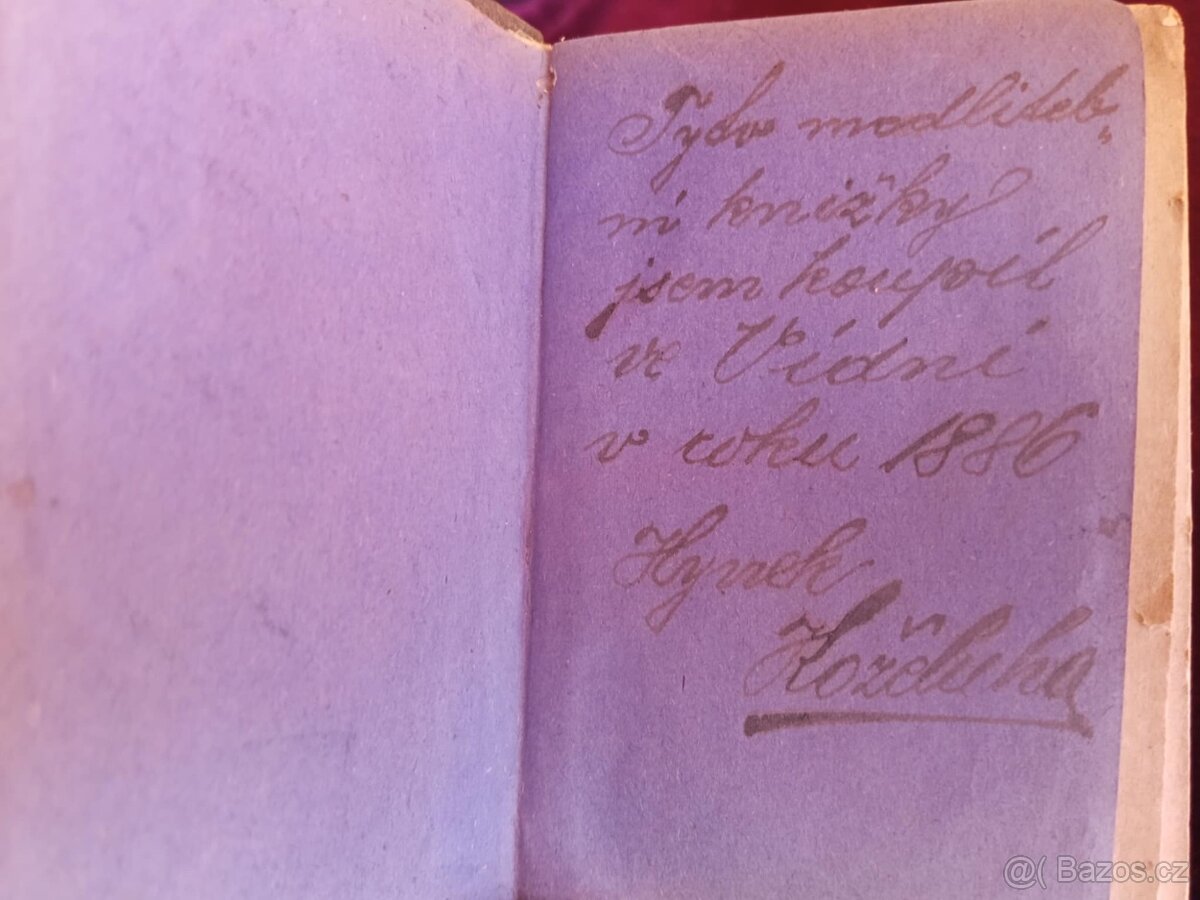 Tyto modliteb„
ní knížky
jsem koupil
ve Vídni
v roku 1886
Hynek
Kožduha
@( Bazos.cz